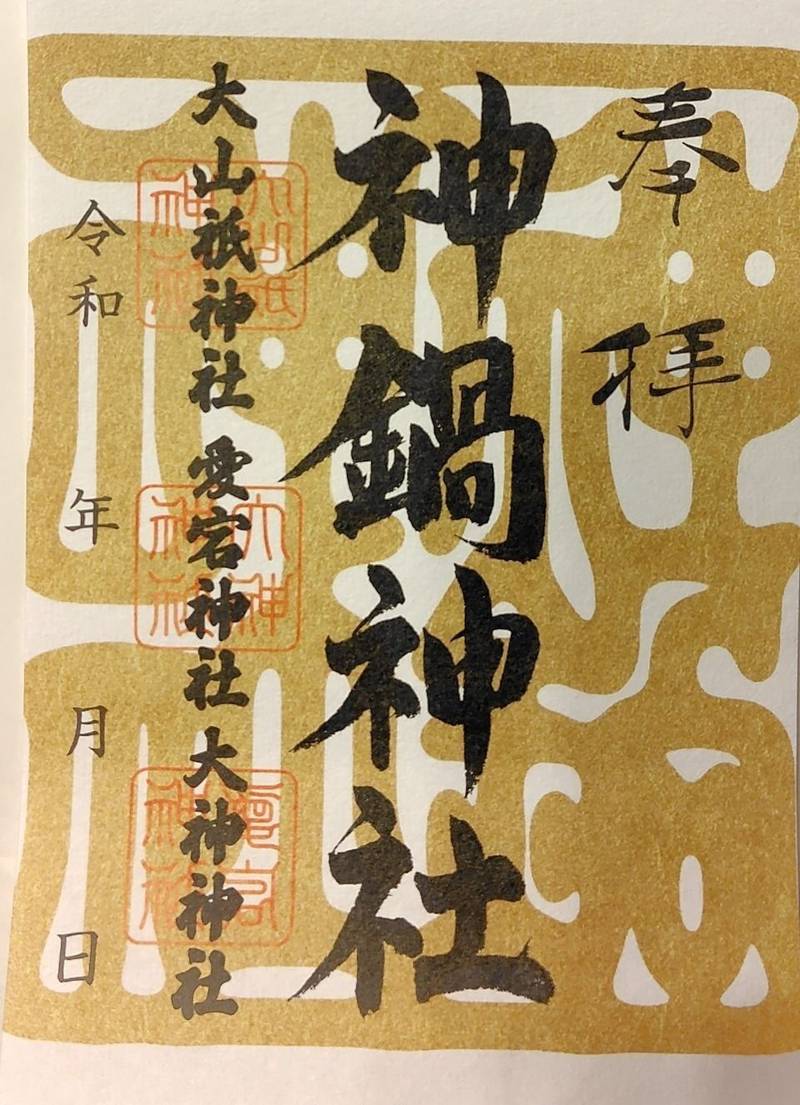 奉拝
神鍋神社
大山祇神社 愛宕神社 大神神社
令和 年 月 日
大山祇神社
大神神社
愛宕神社